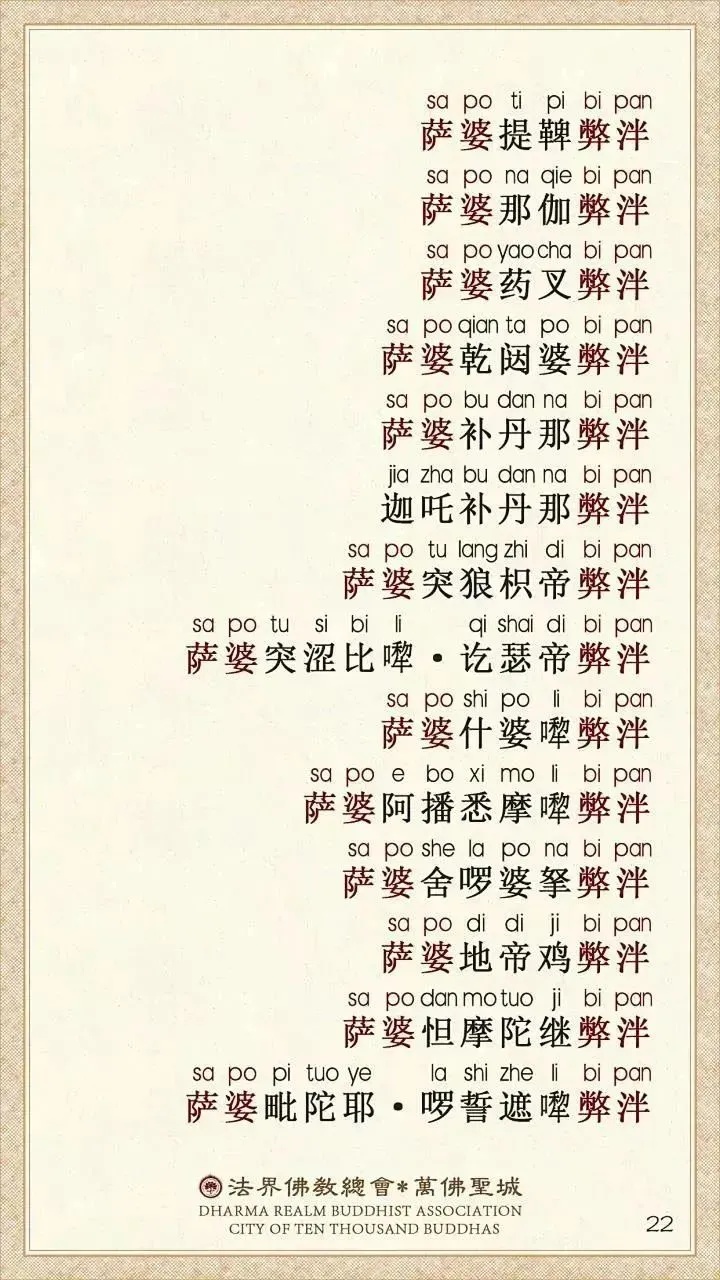 sa po ti pi bi pan
萨婆提鞞弊泮
sa po na qie bi pan
萨婆那伽弊泮
sa po yao cha bi pan
萨婆药叉弊泮
sa po qian ta po bi pan
萨婆乾闼婆弊泮
sa po bu dan na bi pan
萨婆补丹那弊泮
jia zha bu dan na bi pan
迦吒补丹那弊泮
sa po tu lang zhi di bi pan
萨婆突狼枳帝弊泮
sa po tu si bi li qi shai di bi pan
萨婆突涩比㘑·讫瑟帝弊泮
sa po shi po li bi pan
萨婆什婆㘑弊泮
sa po e bo xi mo li bi pan
萨婆阿播悉摩㘑弊泮
sa po she la po na bi pan
萨婆舍啰婆拏弊泮
sa po di di ji bi pan
萨婆地帝鸡弊泮
sa po dan mo tuo ji bi pan
萨婆怛摩陀继弊泮
sa po pi tuo ye la shi zhe li bi pan
萨婆毗陀耶·啰誓遮㘑弊泮
法界佛教總會*萬佛聖城
DHARMA REALM BUDDHIST ASSOCIATION
CITY OF TEN THOUSAND BUDDHAS
22